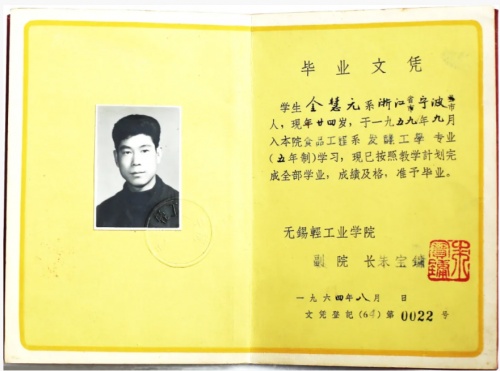 毕业文凭
学生 全慧元 系浙江省市宁波县市
人，现年廿四岁，于一九五九年九月
入本院食品工程系发酵工學 专业
(五年制)学习，现已按照教学计划完
成全部学业，成绩及格，准予毕业。
无錫輕工业学院
副院长朱宝鏞
一九六四年八月 日
文凭登記(64)第0022号